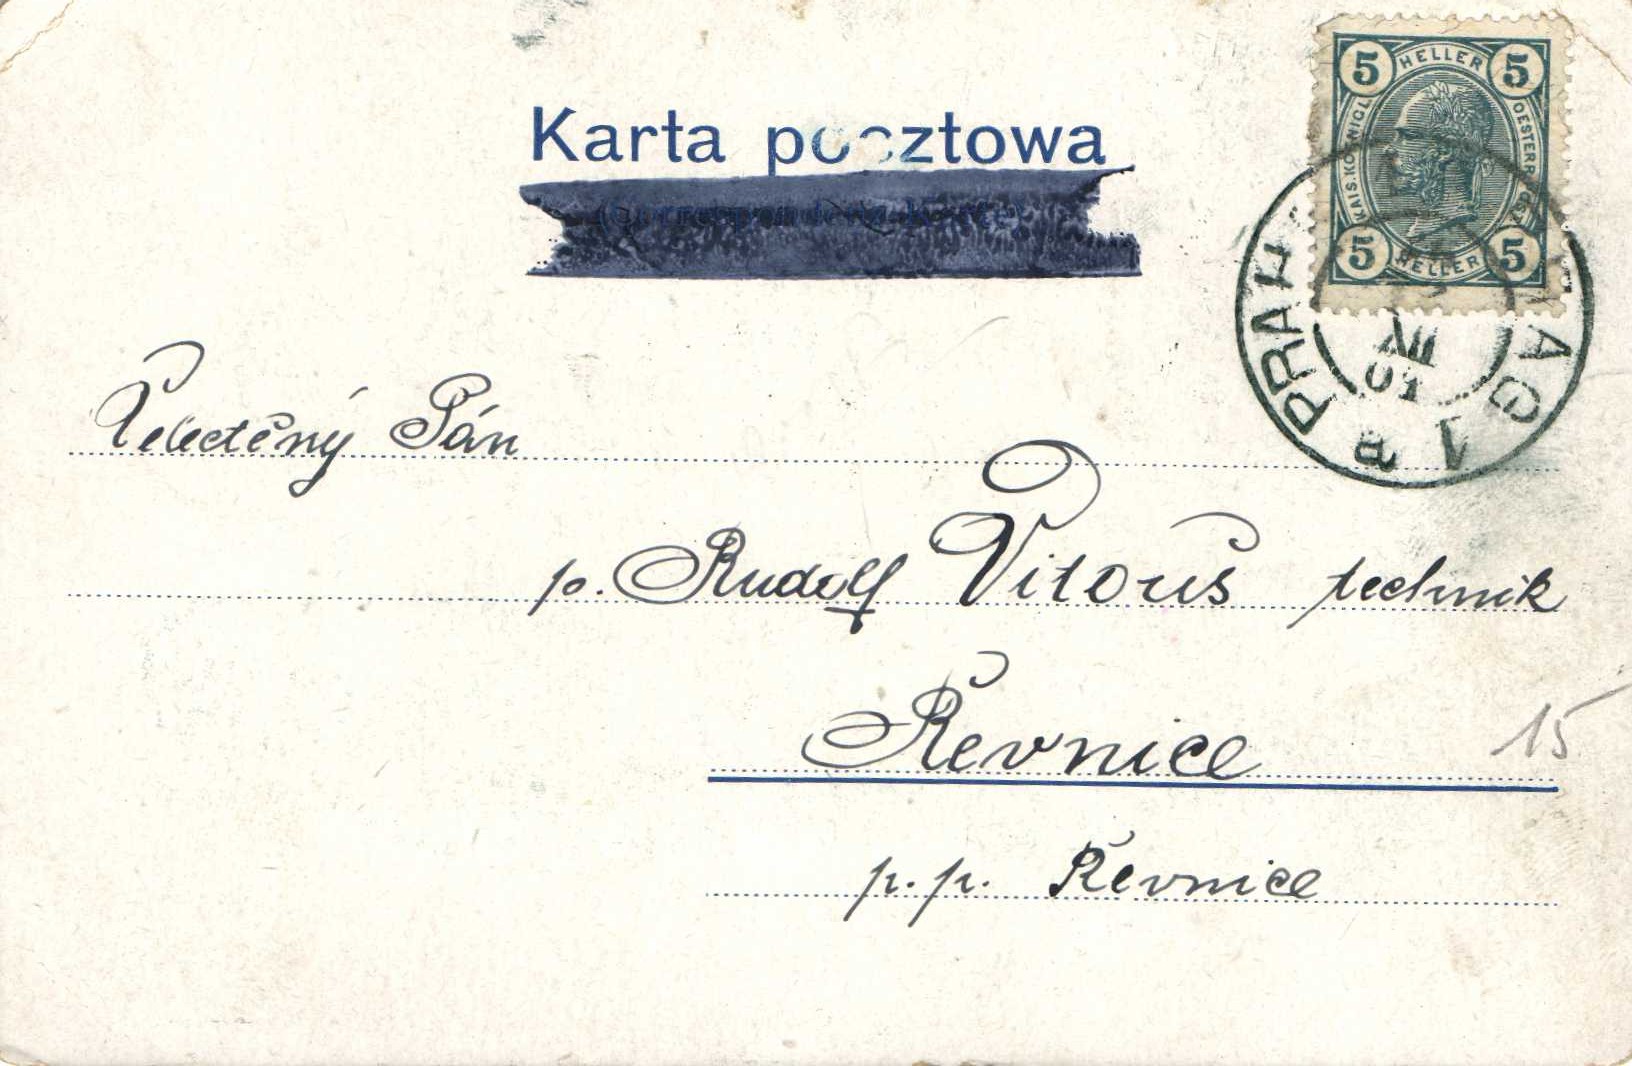 Karta pocztowa
(Correspondenzkarte)
5 HELLER 5
KAIS. KÖNIGL. OESTERR. POST
5 HELLER 5
PRAHA PRAG
XII
01
1 a
Velectěný Pán
p. Rudolf Vitouš technik
Řevnice
15
p. p. Řevnice